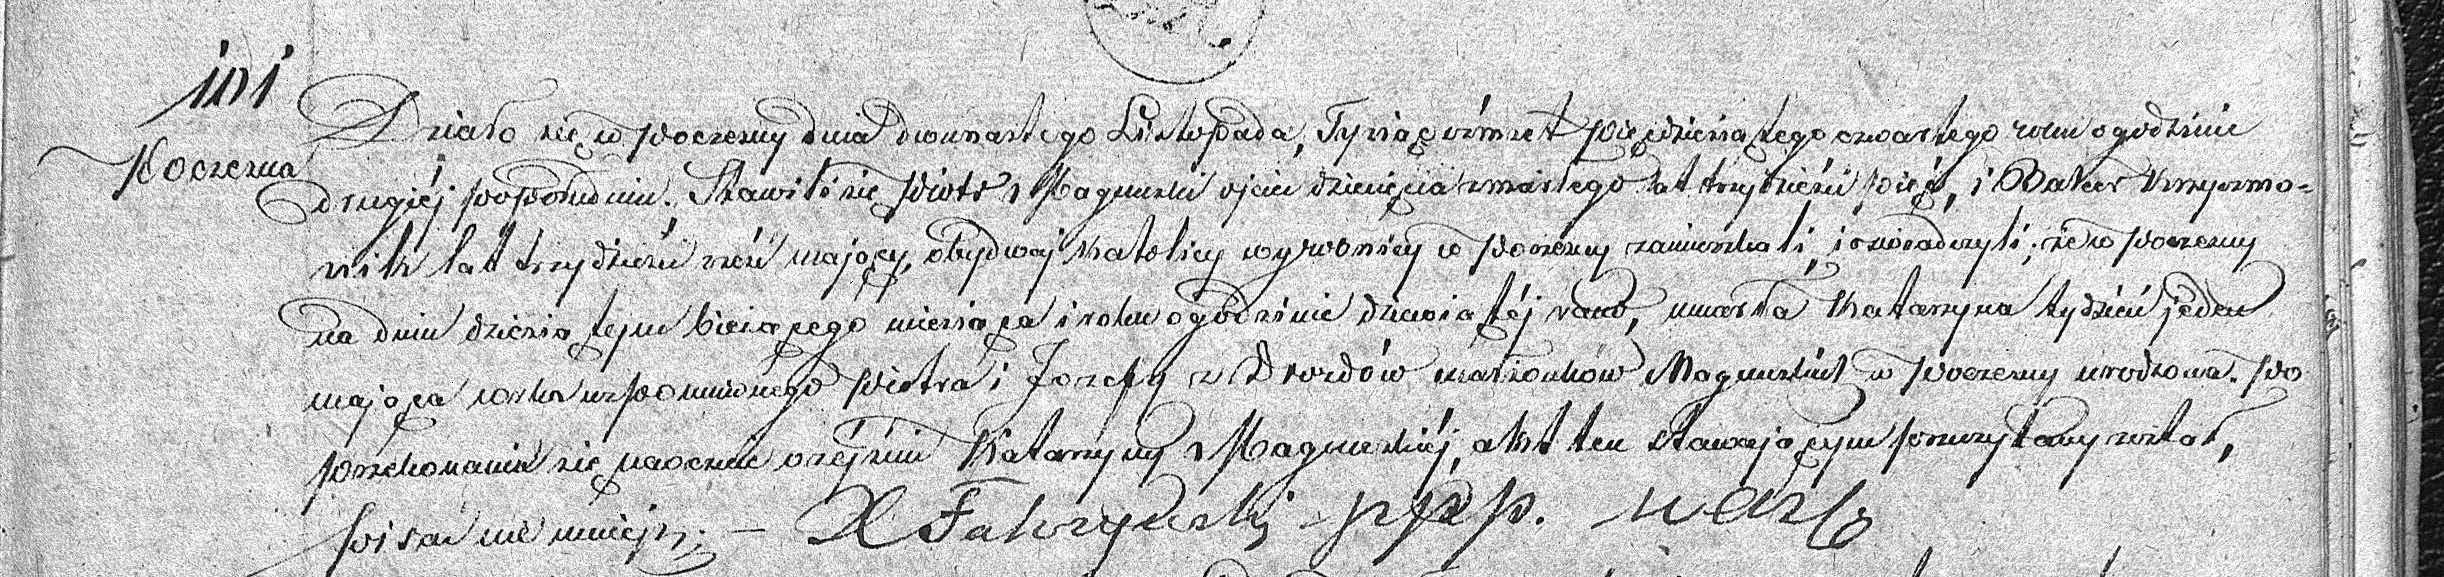 101
Poczerna
Działo się w Poczerny dnia dwunastego Listopada, Tysiąc ośmset pięćdziesiątego czwartego roku o godzinie
drugiéj popołudniu. Stawili się Piotr Magnuski ojciec dziecięcia zmarłego lat trzydzieści pięć, i Walenty
lat trzydzieści sześć mający, obydwaj Katolicy wyrobnicy w Poczerny zamieszkali, i oświadczyli; że w Poczerny
na dniu dziesiątym bieżącego miesiąca i roku o godzinie dziewiątéj rano, umarła Katarzyna tydzień jeden
mająca córka wspomnionego Piotra i Józefy z Drozdów małżonków Magnuskich w Poczerny urodzona. Po
przekonaniu się naocznie o zejściu Katarzyny Magnuskiéj, akt ten stawającym przeczytany został,
pisać nie umieją. — X